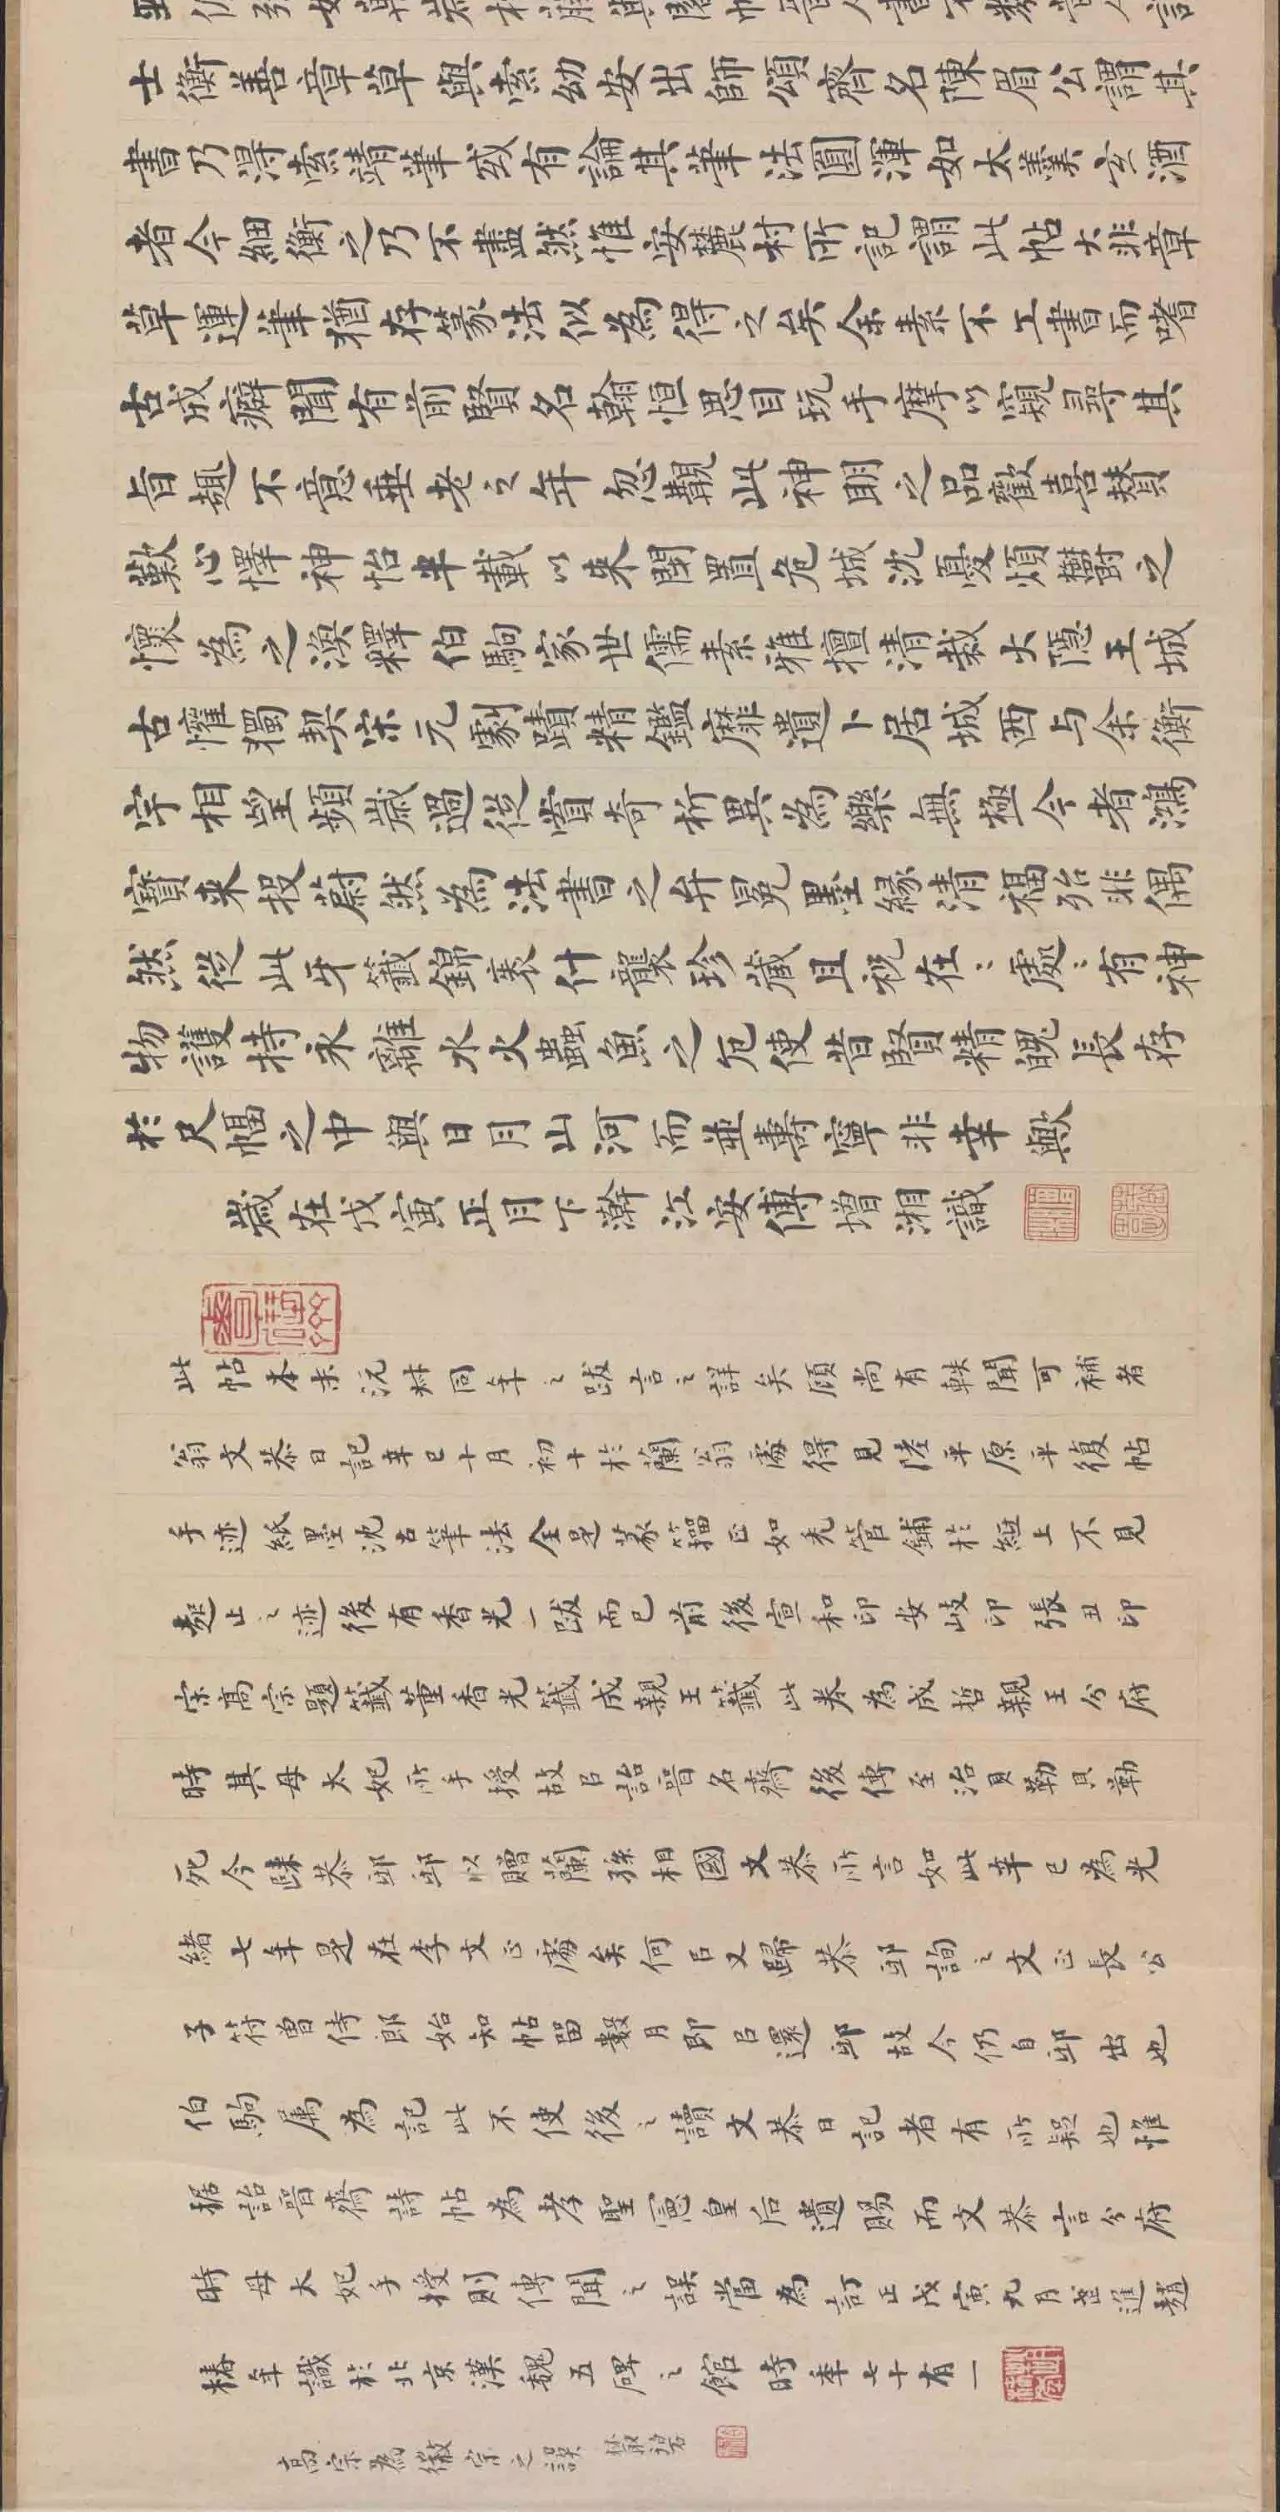 士衡善章草與索幼安出師頌齊名陳眉公謂其
書乃得索靖筆或有論其筆法圓渾如太羹玄酒
者今細衡之乃不盡然惟安麓村所記謂此帖大非章
草運筆猶存篆法似為得之矣余素不工書而嗜
古成癖聞有前賢名翰恒思目玩手摩以窺尋其
旨趣不意垂老之年忽覯此神明之品歡喜贊
歎心懌神怡半載以來閉置危城沈憂煩鬱之
懷為之渙釋伯駒家世儒素雅擅清裁大隱王城
古懽獨契宋元劇蹟精鑑靡遺卜居城西与余衡
宇相望頻歲過從賞奇析異為樂無極今者鴻
寶來投蔚然為法書之弁冕墨緣清福殆非偶
然從此牙籤錦裹什襲珍藏且祝在〻處〻有神
物護持永離水火蟲魚之厄使昔賢精魄長存
於尺幅之中與日月山河而並壽寧非幸歟
歲在戊寅正月下澣江安傅增湘識
此帖本末沅叔同年之跋言之詳矣顧尚有軼聞可補者
翁文恭日記辛巳十月初十於蘭翁處得見陸平原平復帖
手迹紙墨沈古筆法全是篆籀正如禿管鋪於紙上不見
起止之迹後有香光一跋而已前後宣和印安岐印張丑印
宋高宗題籤董香光籤成親王籤此卷為成哲親王分府
時其母太妃所手授故㠯詒晉名齋後傳至治貝勒貝勒
死今歸恭邸邸以贈蘭孫相國文恭所言如此辛巳為光
緒七年是在李文正處矣何㠯又歸恭邸詢之文正長公
子符曾侍郎始知帖留數月即㠯還邸故今仍自邸出也
伯駒属為記此不使後之讀文恭日記者有所疑也惟
据詒晉齋詩帖為孝聖憲皇后遺賜而文恭言分府
時母太妃手授則傳聞之誤當為訂正戊寅九月武進趙
椿年識於北京漢魏五碑之館時年七十有一
高宗為徽宗之誤